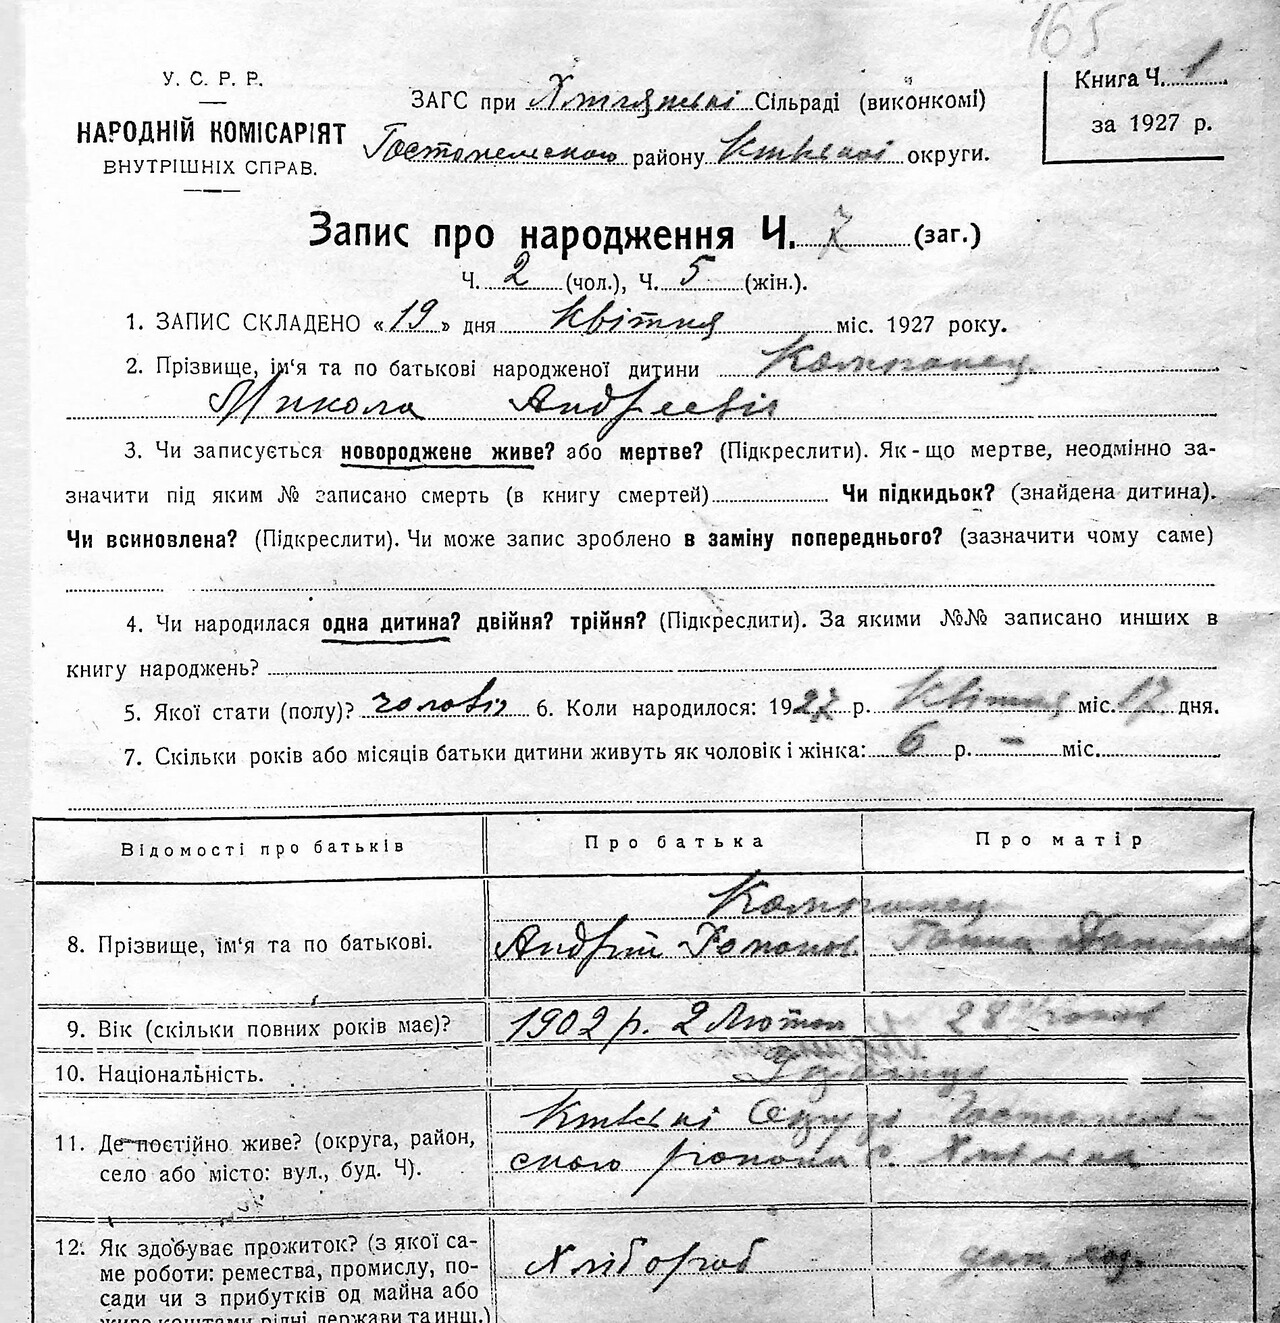 165
У. С. Р. Р.
НАРОДНІЙ КОМІСАРІЯТ
ВНУТРІШНІХ СПРАВ.
ЗАГС при Сільраді (виконкомі)
Гостомельского району Київської округи.
Книга Ч. 1
за 1927 р.
Запис про народження Ч. 7 (заг.)
Ч. 2 (чол.), Ч. 5 (жін.).
1. ЗАПИС СКЛАДЕНО «19» дня квітня міс. 1927 року.
2. Прізвище, ім'я та по батькові народженої дитини Компанец
Микола Андреевіч
3. Чи записується новороджене живе? або мертве? (Підкреслити). Як-що мертве, неодмінно за-
значити під яким № записано смерть (в книгу смертей) Чи підкидьок? (знайдена дитина).
Чи всиновлена? (Підкреслити). Чи може запис зроблено в заміну попереднього? (зазначити чому саме)
4. Чи народилася одна дитина? двійня? трійня? (Підкреслити). За якими №№ записано инших в
книгу народжень?
5. Якої стати (полу)? чоловіч 6. Коли народилося: 1927 р. квітня міс. 17 дня.
7. Скільки років або місяців батьки дитини живуть як чоловік і жінка: 6 р. – міс.
Відомості про батьків Про батька Про матір
Компанец
8. Прізвище, ім'я та по батькові. Андрій Ганна
9. Вік (скільки повних років має)? 1902 р. 2 Лютого 28
10. Національність.
Київські Округи Гостомель-
11. Де постійно живе? (округа, район, ского району с.
село або місто: вул., буд. Ч).
12. Як здобуває прожиток? (з якої са- Хлібороб
ме роботи: ремества, промислу, по-
сади чи з прибутків од майна або
живе коштами рідні держави та инш.)